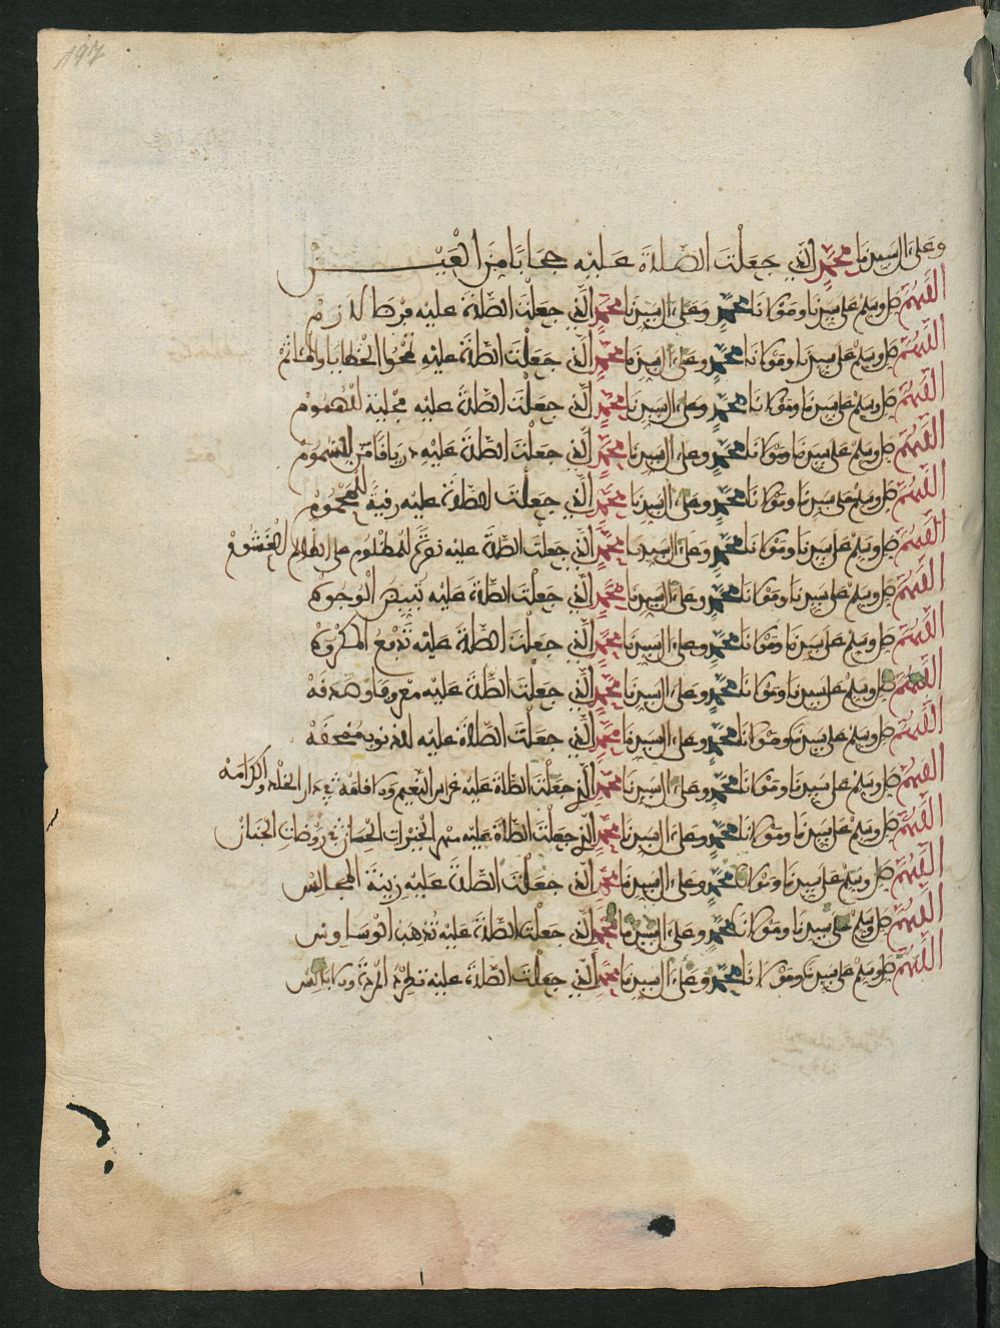 197
وعلى ال سيدنا محمد الذي جعلت الصلاة عليه حجابا من الغين
اللهم صل وسلم على سيدنا ومولانا محمد وعلى ال سيدنا محمد الذي جعلت الصلاة عليه فرطا لازم
اللهم صل وسلم على سيدنا ومولانا محمد وعلى ال سيدنا محمد الذي جعلت الصلاة عليه تمحوا الخطايا والماثم
اللهم صل وسلم على سيدنا ومولانا محمد وعلى ال سيدنا محمد الذي جعلت الصلاة عليه مجلية للهموم
اللهم صل وسلم على سيدنا ومولانا محمد وعلى ال سيدنا محمد الذي جعلت الصلاة عليه درياقا من السموم
اللهم صل وسلم على سيدنا ومولانا محمد وعلى ال سيدنا محمد الذي جعلت الصلاة عليه رقية للمحموم
اللهم صل وسلم على سيدنا ومولانا محمد وعلى ال سيدنا محمد الذي جعلت الصلاة عليه نصرة للمظلوم على الظالم الغشوم
اللهم صل وسلم على سيدنا ومولانا محمد وعلى ال سيدنا محمد الذي جعلت الصلاة عليه تبيض الوجوه
اللهم صل وسلم على سيدنا ومولانا محمد وعلى ال سيدنا محمد الذي جعلت الصلاة عليه تدفع المكروه
اللهم صل وسلم على سيدنا ومولانا محمد وعلى ال سيدنا محمد الذي جعلت الصلاة عليه معروفا وصدقه
اللهم صل وسلم على سيدنا ومولانا محمد وعلى ال سيدنا محمد الذي جعلت الصلاة عليه للذنوب ممحقه
اللهم صل وسلم على سيدنا ومولانا محمد وعلى ال سيدنا محمد الذي جعلت الصلاة عليه غراس النعيم والاقامة في دار الخلد والكرامه
اللهم صل وسلم على سيدنا ومولانا محمد وعلى ال سيدنا محمد الذي جعلت الصلاة عليه مهر الخيرات الحسان في روضات الجنان
اللهم صل وسلم على سيدنا ومولانا محمد وعلى ال سيدنا محمد الذي جعلت الصلاة عليه زينة المجالس
اللهم صل وسلم على سيدنا ومولانا محمد وعلى ال سيدنا محمد الذي جعلت الصلاة عليه تذهب الوساوس
اللهم صل وسلم على سيدنا ومولانا محمد وعلى ال سيدنا محمد الذي جعلت الصلاة عليه تطرد المردة والابالس